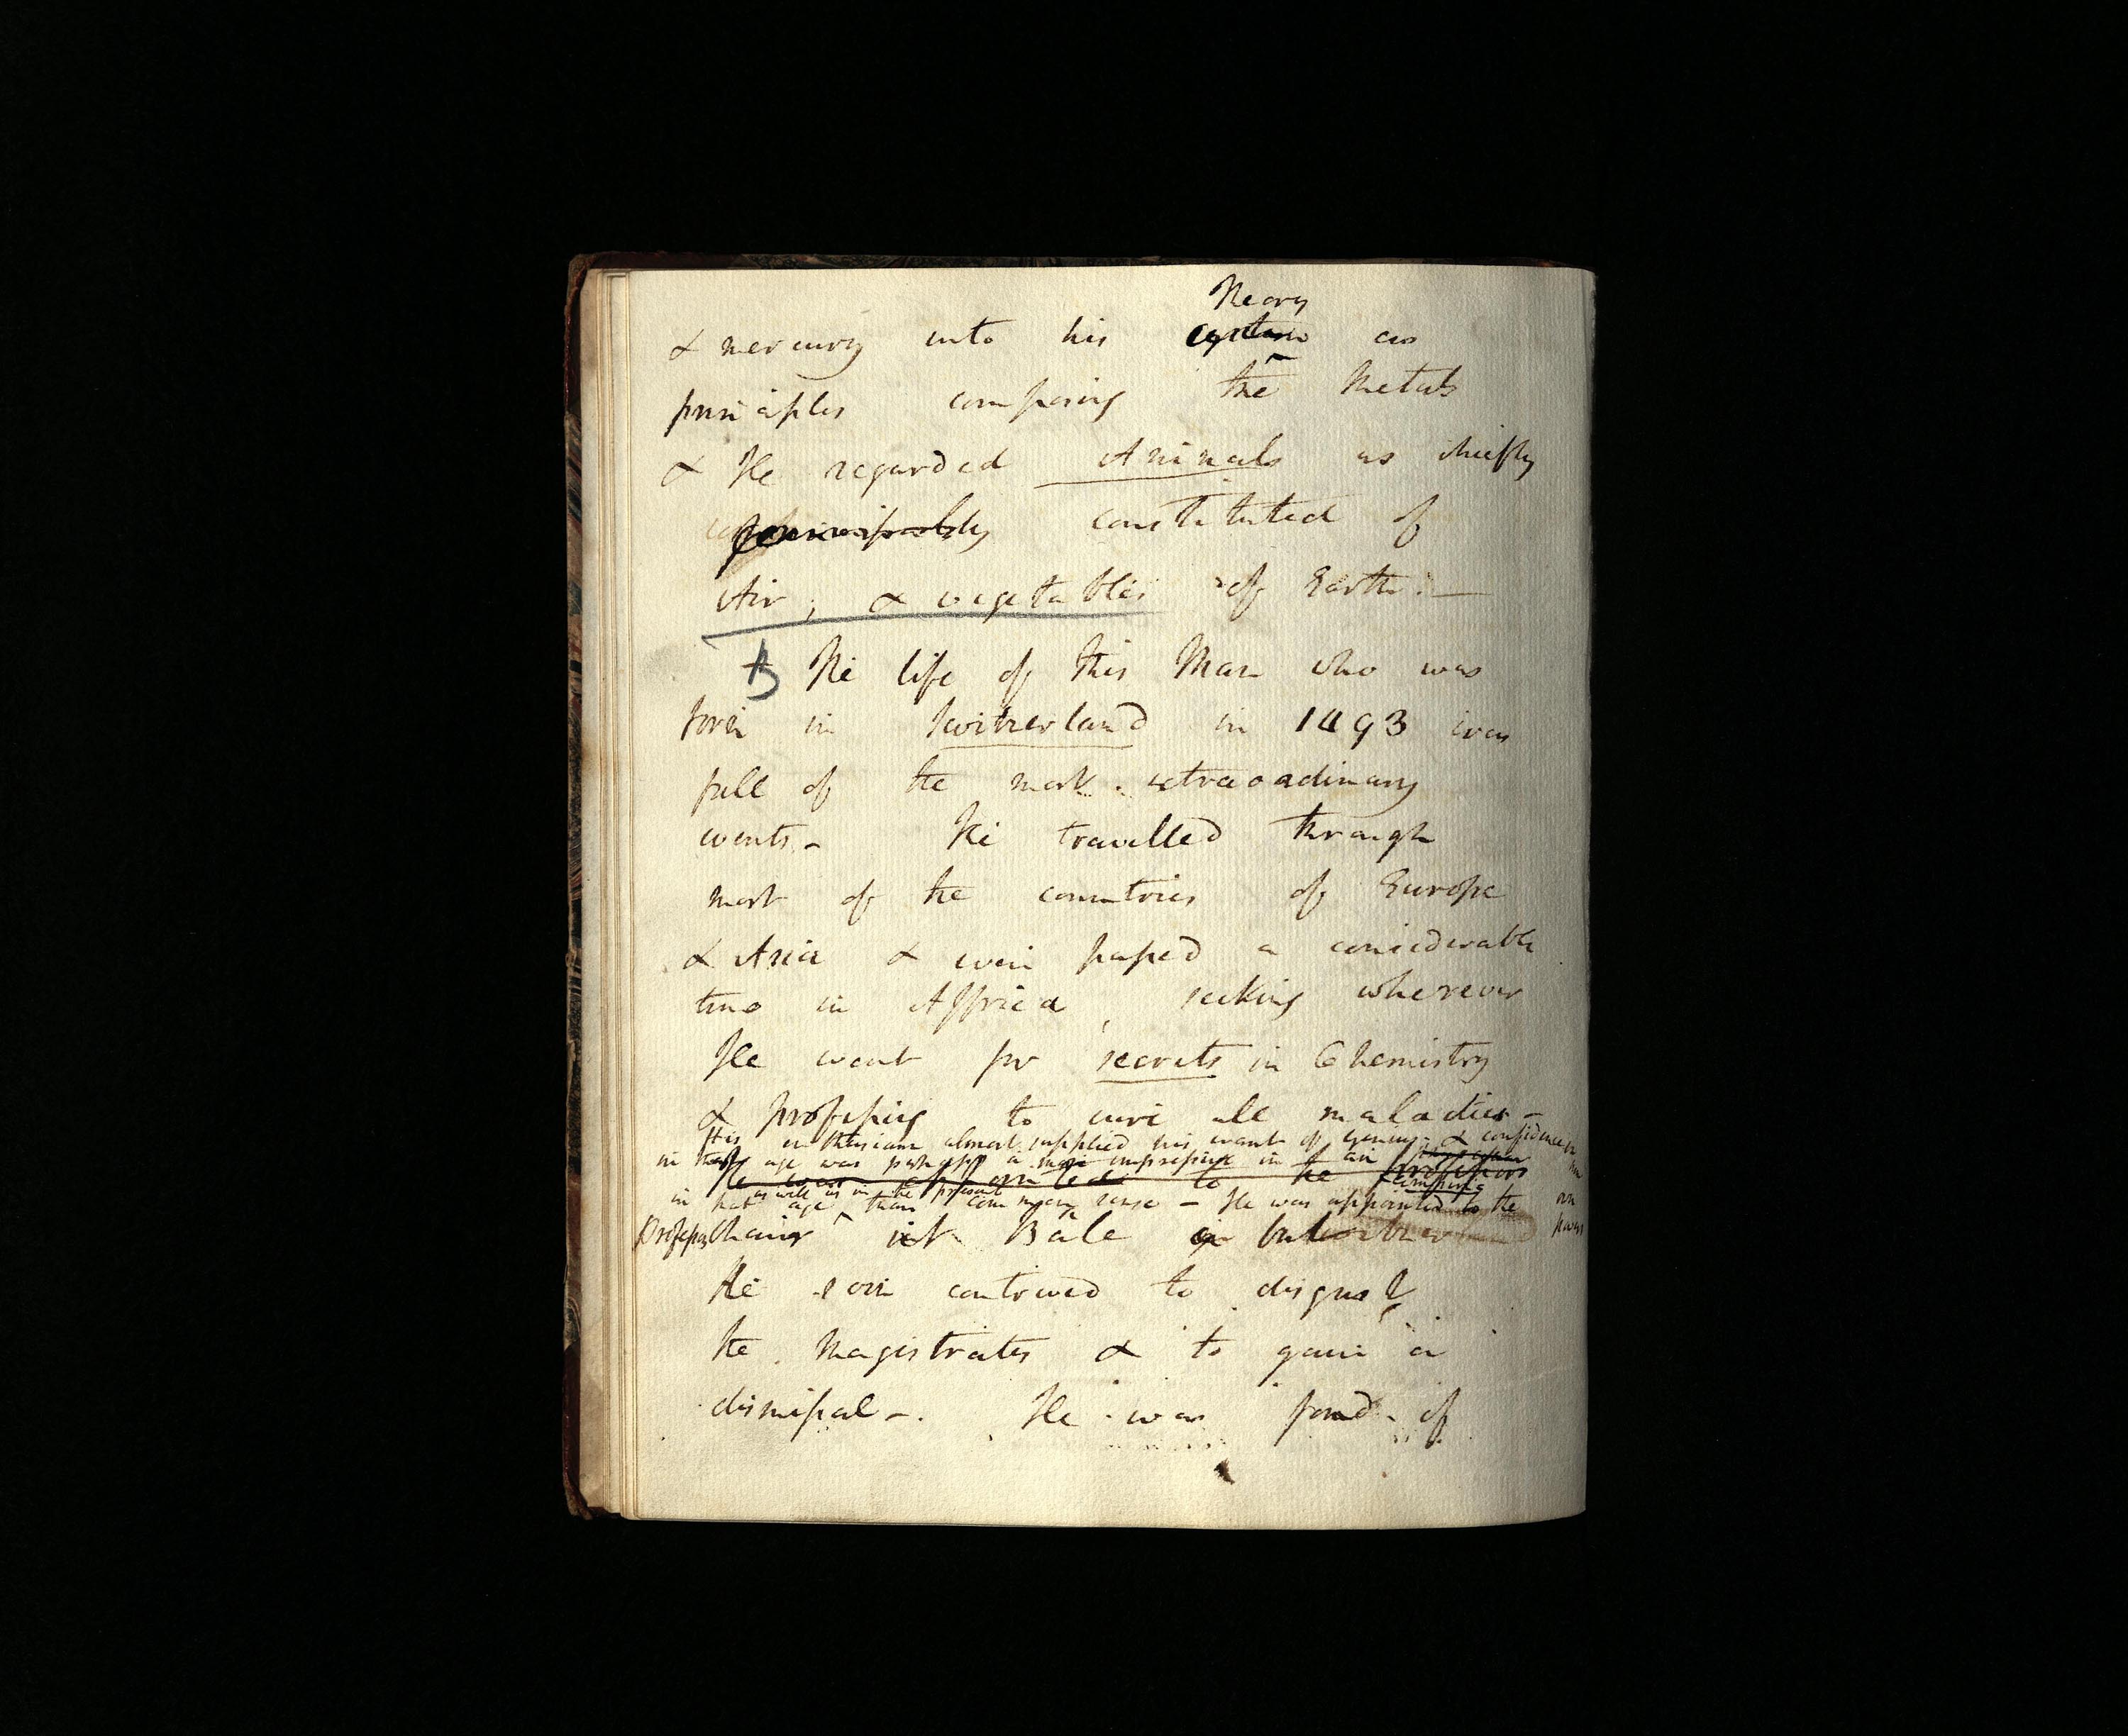 Theory
& mercury into his system as
principles composing the Metals
& He regarded Animals as chiefly
principally constituted of
Air, & vegetables of Earth. —
B The life of this Man who was
born in Switzerland in 1493 was
full of the most extraoadinary
events. – He travelled through
most of the countries of Europe
& Asia & even passed a considerable
time in Affrica, seeking wherever
He went for secrets in Chemistry
& professing to cure all maladies –
His enthusiasm almost supplied his want of genius & confidence in his own powers
in that age was perhaps a more impressive
He was appointed to the professors
as well as in the present
in that age than common sense – He was appointed to the
Professors Chair at Bale but
He soon contrived to disgust
the Magistrates & to gain a
dismissal –. He was fond of